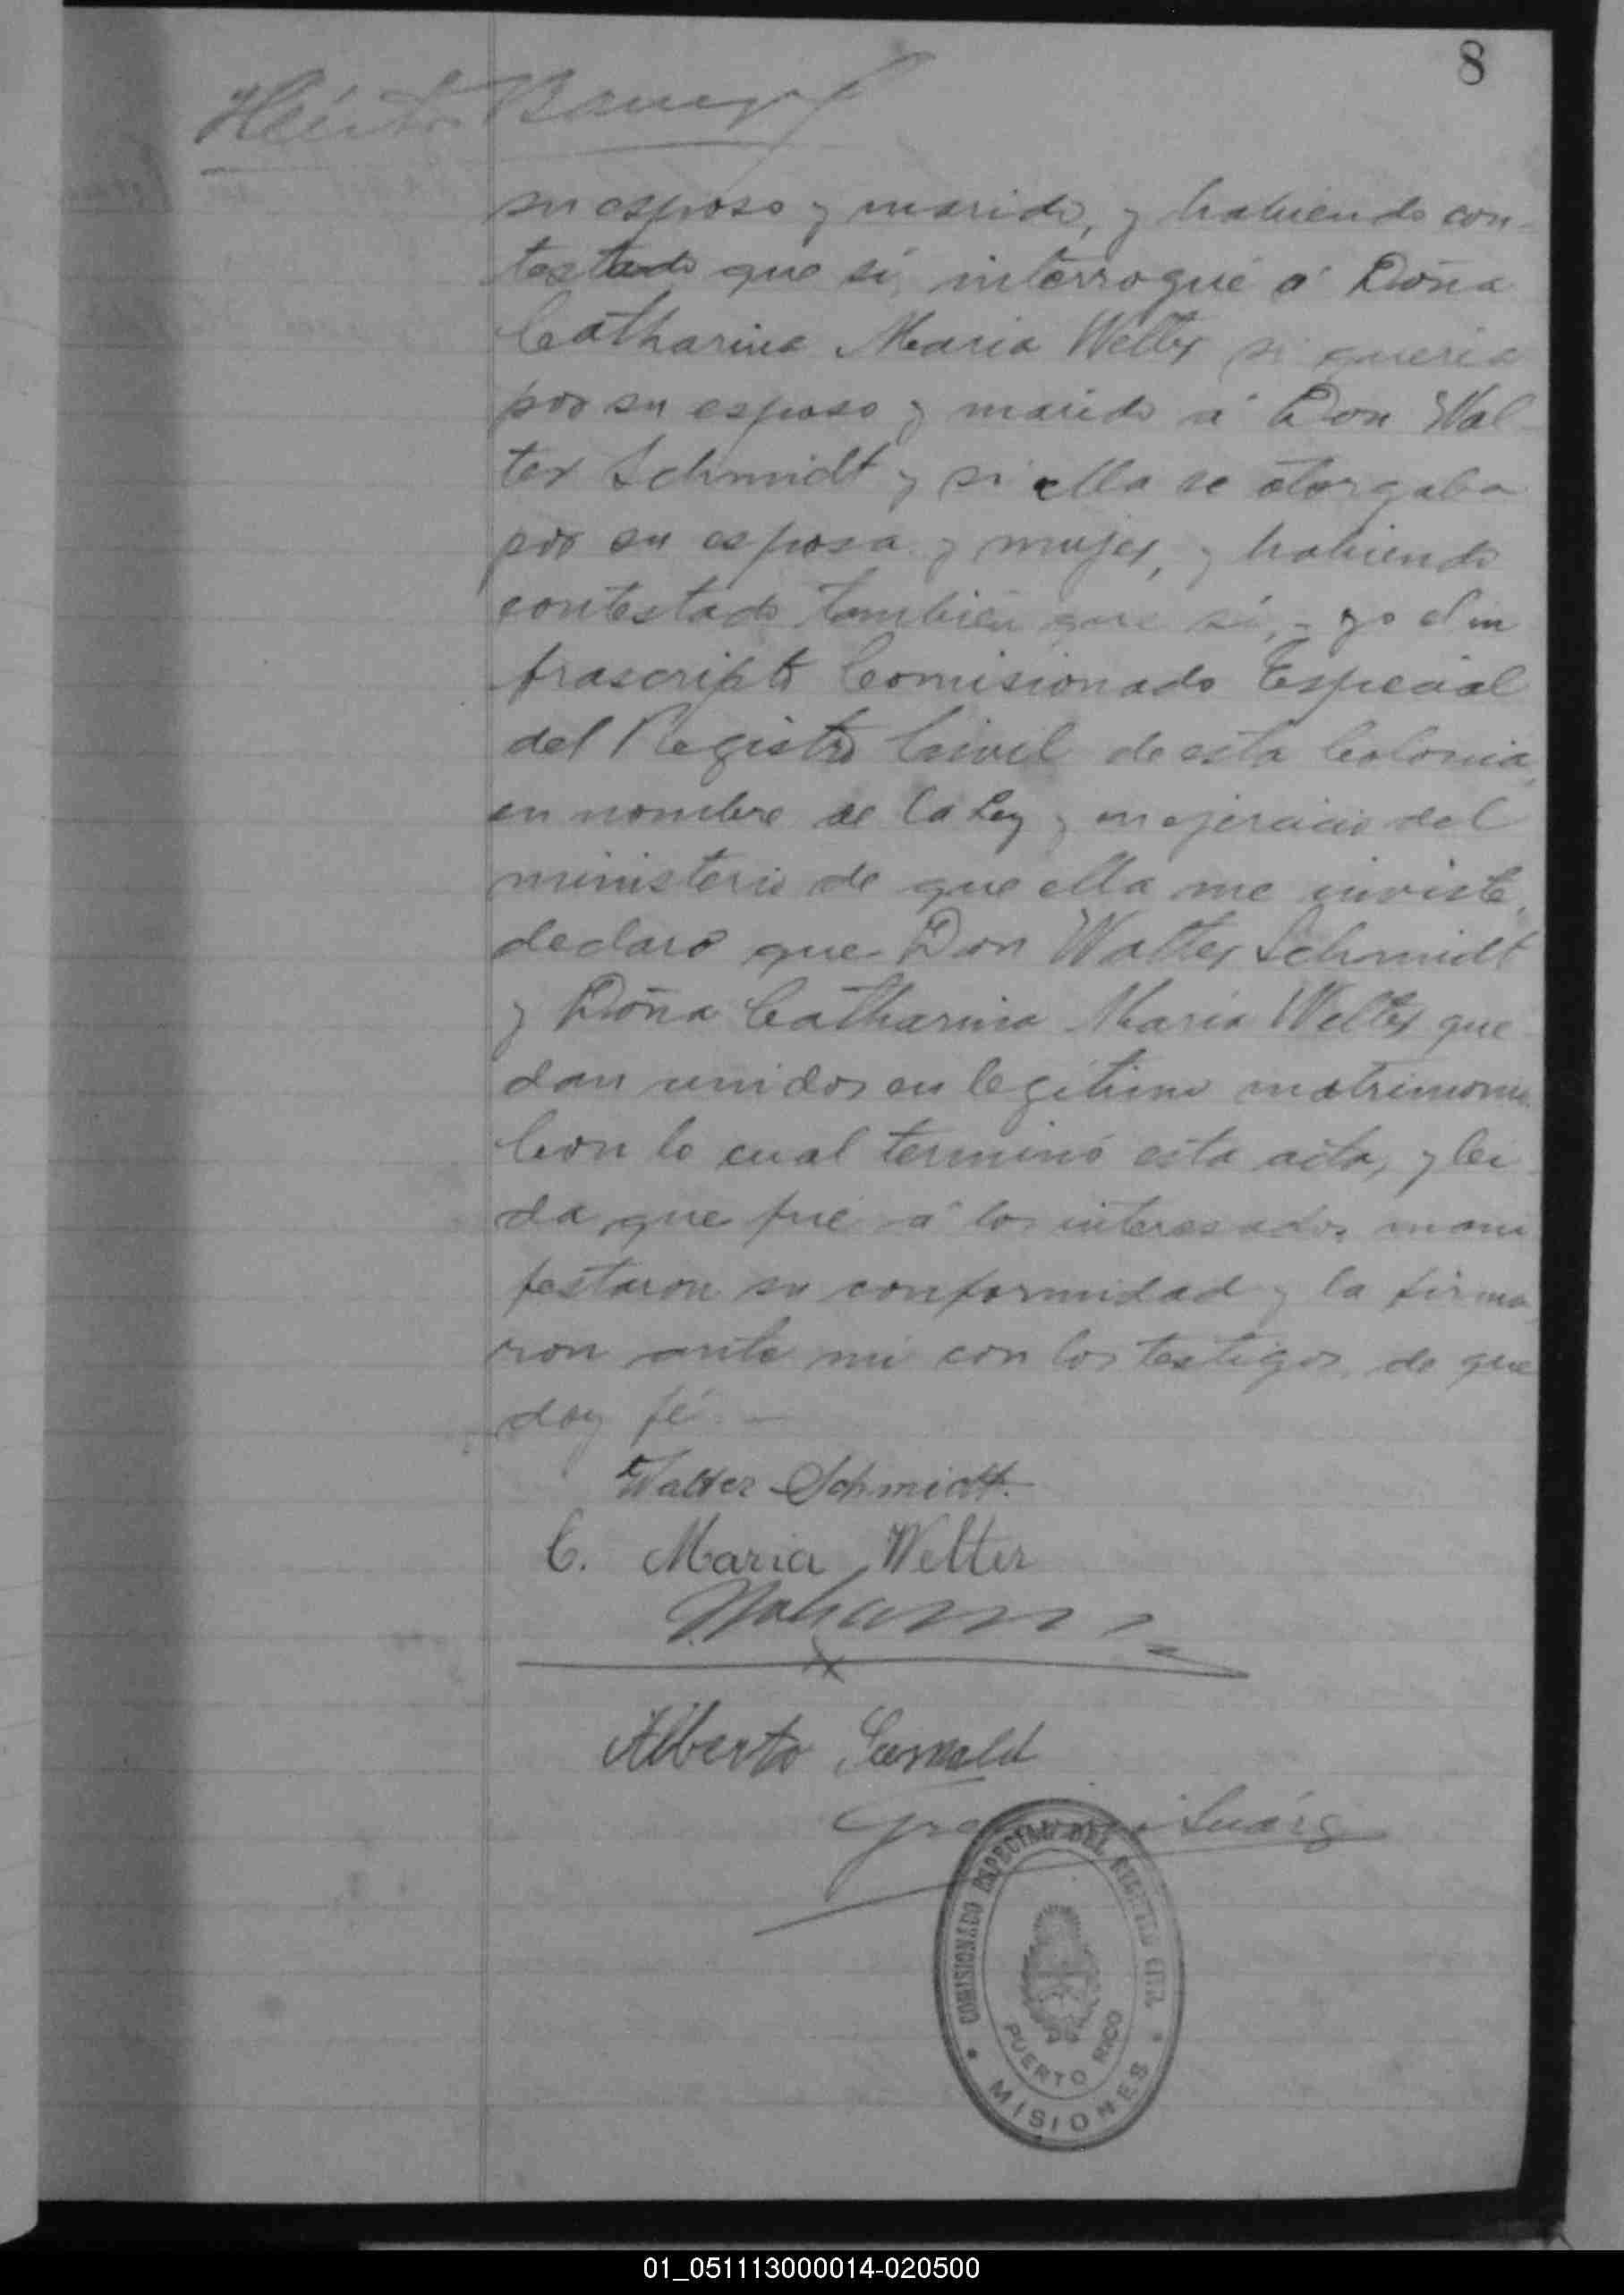 8
su esposo y marido, y habiendo con-
testado que sí, interrogué á Doña
Catharina Maria Welter si queria
por su esposo y marido á Don Wal-
ter Schmidt y si ella se otorgaba
por su esposa y mujer, y habiendo
contestado también que sí, - yo el in
frascripto Comisionado Especial
del Registro Civil de esta Colonia,
en nombre de la Ley y en ejercicio del
ministerio de que ella me inviste,
declaro que Don Walter Schmidt
y Doña Catharina Maria Welter que-
dan unidos en legítimo matrimonio.
Con lo cual terminó esta acta, y lei-
da que fué á los interesados, mani
festaron su conformidad y la firma
ron ante mi con los testigos, de que
doy fé. -
Walter Schmidt.
C. Maria Welter
Alberto
Suárez
COMISIONADO ESPECIAL DEL REGISTRO CIVIL
PUERTO RICO
* MISIONES *
01_051113000014-020500